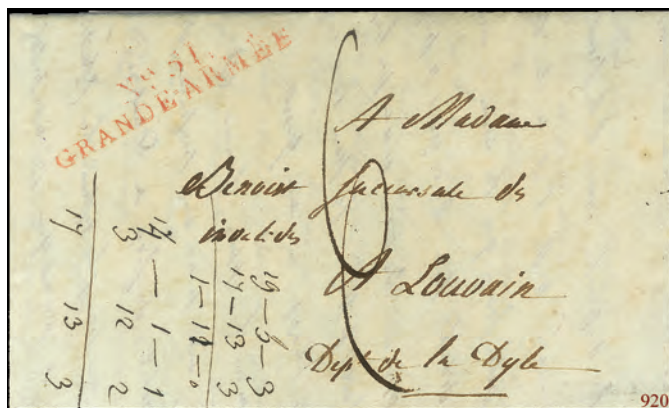 No 51.
GRANDE-ARMÉE
A Madame
Benoist succursale des
invalides
A Louvain
Dept de la Dyle
6
19-5-3
17-13 3
1-11-0
14 - 1 - 1
3 12 2
17 13 3
920